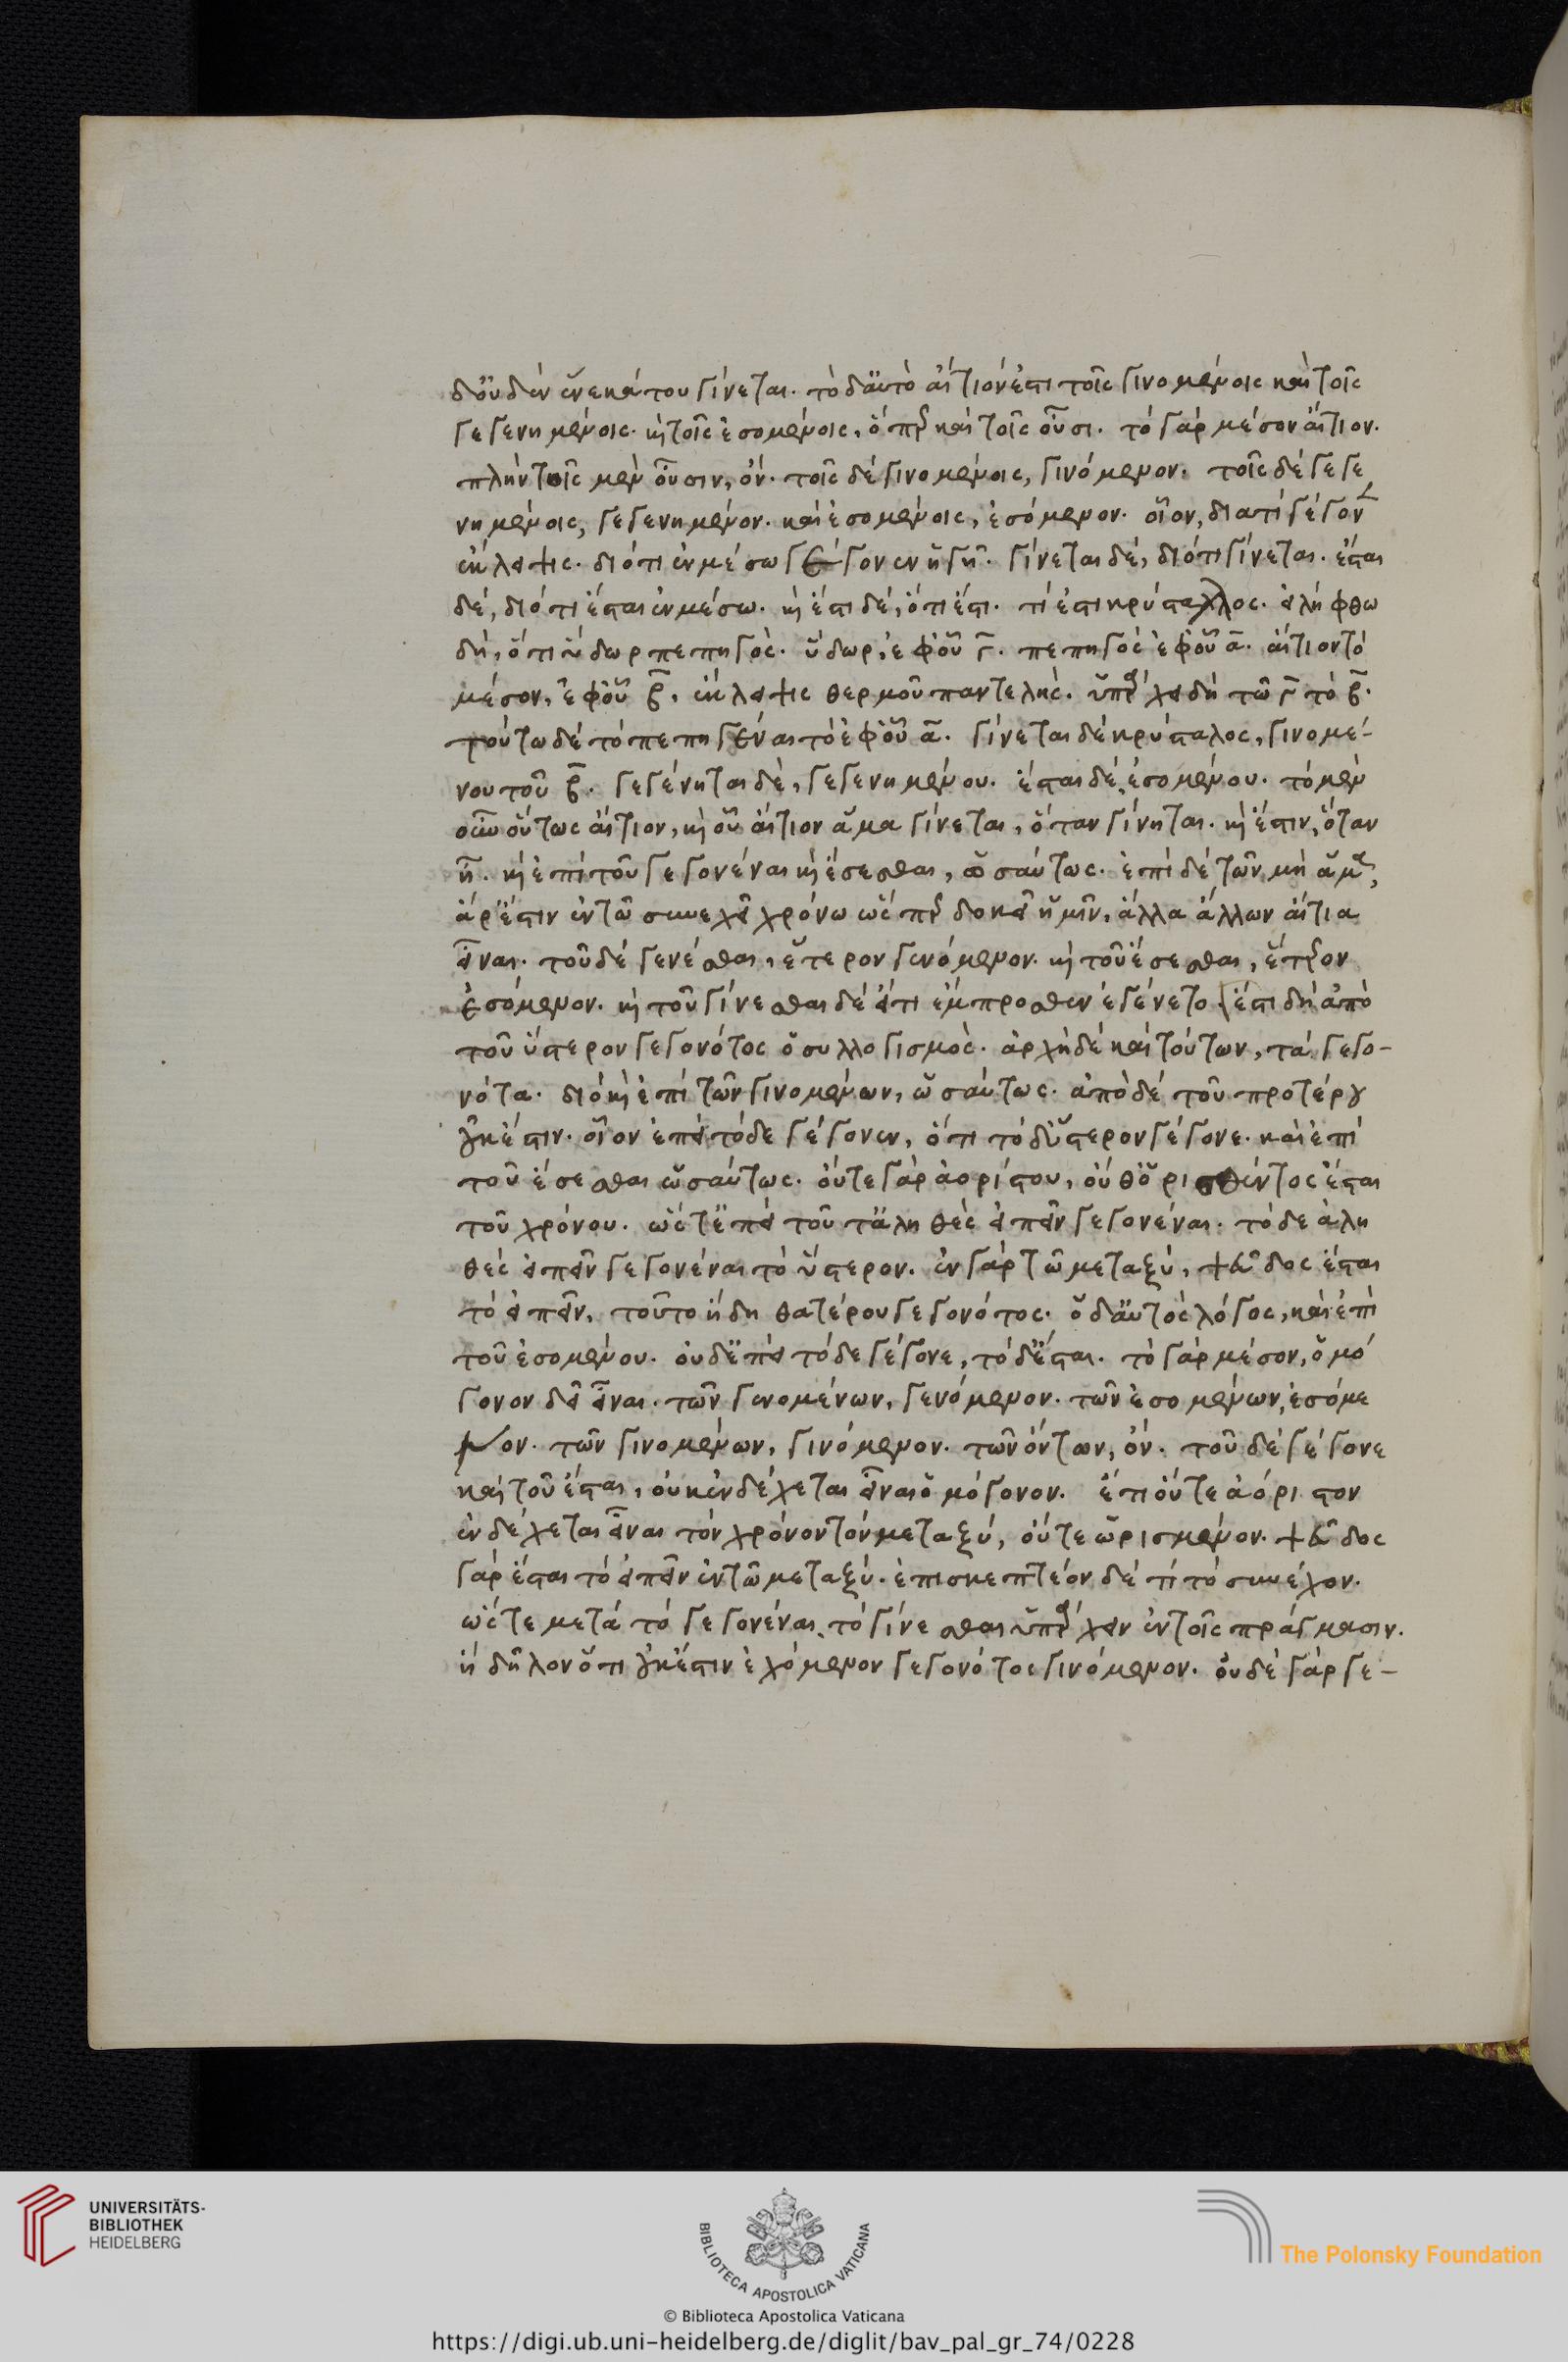 δ' οὐδὲν ἕνεκά του γίνεται. τὸ δ' αὐτὸ αἴτιόν ἐστι τοῖς γινομένοις καὶ τοῖς
γεγενημένοις. κ̀ τοῖς ἐσομένοις, ὅπερ καὶ τοῖς οὖσι. τὸ γὰρ μέσον αἴτιον.
πλὴν τοῖς μὲν οὖσιν, ὄν. τοῖς δὲ γινομένοις, γινόμενον. τοῖς δὲ γεγε
νημένοις, γεγενημένον. καὶ ἐσομένοις, ἐσόμενον. οἷον, διατί γέγον
ἔκλειψις. διότι ἐν μέσω γέγονεν ἡ γῆ. γίνεται δέ, διότι γίνεται. ἔσται
δέ, διότι ἔσται ἐν μέσω. κ̀ ἔστι δέ, ὅτι ἔστι. τί ἐστι κρύσταλλος. εἰλήφθω
δή, ὅτι ὕδωρ πεπηγός. ὕδωρ, ἐφ' οὗ γ̄. πεπηγὸς ἐφ' οὗ ᾱ. αἴτιον τὸ
μέσον, ἐφ' οὗ β̄, ἔκλειψις θερμοῦ παντελής. ὑπάρχει δὴ τῶ γ̄ τὸ β̄.
τούτω δὲ τὸ πεπηγέναι τὸ ἐφ' οὗ ᾱ. γίνεται δὲ κρύσταλος, γινομέ-
νου τοῦ β̄. γεγένηται δὲ, γεγενημένου. ἔσται δέ, ἐσομένου. τὸ μὲν
οὖν οὕτως αἴτιον, κ̀ οὗ αἴτιον ἅμα γίνεται, ὅταν γίνηται. κ̀ ἔστιν, ὅταν
ἦ. κ̀ ἐπὶ τοῦ γεγονέναι κ̀ ἔσεσθαι, ὡσαύτως. ἐπὶ δὲ τῶν μὴ ἅμα,
ἆρ' ἔστιν ἐν τῶ συνεχεῖ χρόνω ὥσπερ δοκεῖ ἡμῖν, ἄλλα ἄλλων αἴτια
εἶναι. τοῦ δὲ γενέσθαι, ἕτερον γενόμενον. κ̀ τοῦ ἔσεσθαι, ἕτερον
ἐσόμενον. κ̀ τοῦ γίνεσθαι δὲ εἴ τι ἔμπροσθεν ἐγένετο. ἔστι δὴ ἀπὸ
τοῦ ὕστερον γεγονότος ὁ συλλογισμός. ἀρχὴ δὲ καὶ τούτων, τὰ γεγο-
νότα. διὸ κ̀ ἐπὶ τῶν γινομένων, ὡσαύτως. ἀπὸ δὲ τοῦ προτέρου
οὐκ ἔστιν. οἷον ἐπεὶ τόδε γέγονεν, ὅτι τὸ δ' ὕστερον γέγονε. καὶ ἐπὶ
τοῦ ἔσεσθαι ὡσαύτως. οὔτε γὰρ ἀορίστου, οὔθ' ὁρισθέντος ἔσται
τοῦ χρόνου. ὥστ' ἐπεὶ τοῦ τ' ἀληθὲς εἰπεῖν γεγονέναι. τόδε ἀλη
θὲς εἰπεῖν γεγονέναι τὸ ὕστερον. ἐν γὰρ τῶ μεταξύ, ψεῦδος ἔσται
τὸ εἰπεῖν, τοῦτο ἤδη θατέρου γεγονότος. ὁ δ' αὐτὸς λόγος, καὶ ἐπὶ
τοῦ ἐσομένου. οὐδ' ἐπεὶ τόδε γέγονε, τόδ' ἔσται. τὸ γὰρ μέσον, ὁμό
γονον δεῖ εἶναι. τῶν γενομένων, γενόμενον. τῶν ἐσομένων, ἐσόμε
νον. τῶν γινομένων, γινόμενον. τῶν ὄντων, ὄν. τοῦ δὲ γέγονε
καὶ τοῦ ἔσται, οὐκ ἐνδέχεται εἶναι ὁμόγονον. ἔτι οὔτε ἀόριστον
ἐνδέχεται εἶναι τὸν χρόνον τὸν μεταξύ, οὔτε ὡρισμένον. ψεῦδος
γὰρ ἔσται τὸ εἰπεῖν ἐν τῶ μεταξύ. ἐπισκεπτέον δὲ τί τὸ συνέχον.
ὥστε μετὰ τὸ γεγονέναι, τὸ γίνεσθαι ὑπάρχειν ἐν τοῖς πράγμασιν.
ἢ δῆλον ὅτι οὐκ ἔστιν ἐχόμενον γεγονότος γινόμενον. οὐδὲ γὰρ γε-
UNIVERSITÄTS-
BIBLIOTHEK
HEIDELBERG
BIBLIOTECA APOSTOLICA VATICANA
The Polonsky Foundation
© Biblioteca Apostolica Vaticana
https://digi.ub.uni-heidelberg.de/diglit/bav_pal_gr_74/0228